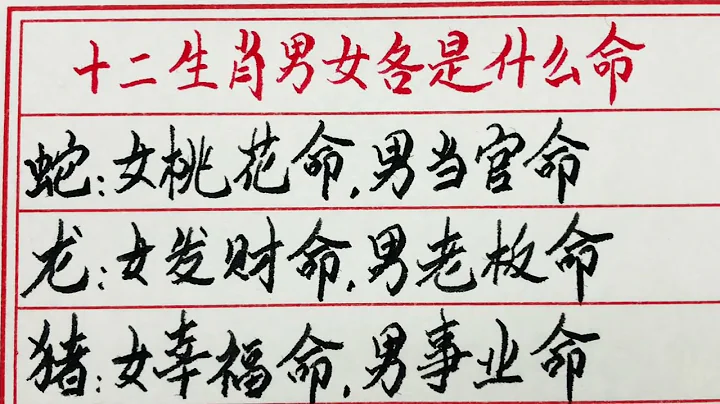 十二生肖男女各是什么命
蛇:女桃花命,男当官命
龙:女发财命,男老板命
猪:女幸福命,男事业命